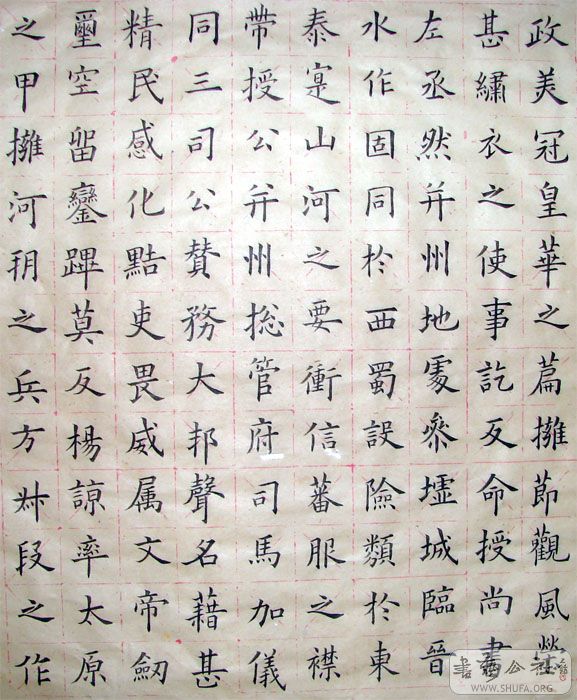 政美冠皇華之篇擁節觀風榮
甚繡衣之使事訖反命授尚書
左丞然并州地處參墟城臨晉
水作固同於西蜀設險類於東
泰寔山河之要衝信蕃服之襟
帶授公并州揔管府司馬加儀
同三司公贊務大邦聲名藉甚
精民感化黠吏畏威属文帝劒
璽空留鑾蹕莫反楊諒率太原
之甲擁河朔之兵方叔段之作
WWW.SHUFA.ORG